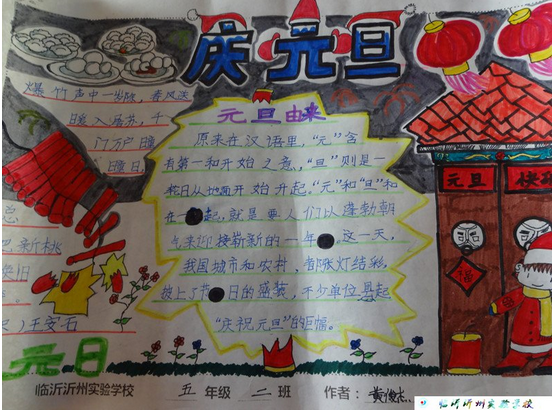 庆元旦
爆竹声中一岁除，春风送
暖入屠苏，千
门万户曈
曈日，
总
把新桃
换旧
王安石
元日
元旦由来
原来在汉语里，“元”含
有第一和开始之意，“旦”则是一
轮日从地面开始升起，“元”和“旦”和
在一起，就是要人们以蓬勃朝
气来迎接崭新的一年。这一天，
我国城市和农村，都张灯结彩，
披上了节日的盛装，不少单位悬起
“庆祝元旦”的巨幅。
元旦
快
福
临沂沂州实验学校 五年级 二班 作者：黄俊
临沂沂州实验学校